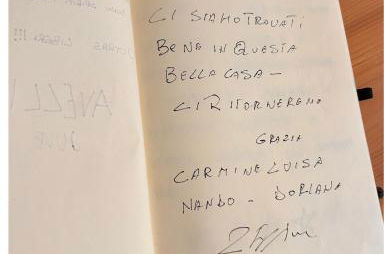 CI SIAMO TROVATI
BENE IN QUESTA
BELLA CASA –
CI RITORNEREMO
GRAZIE
CARMINE LUISA
NANDO - DORIANA